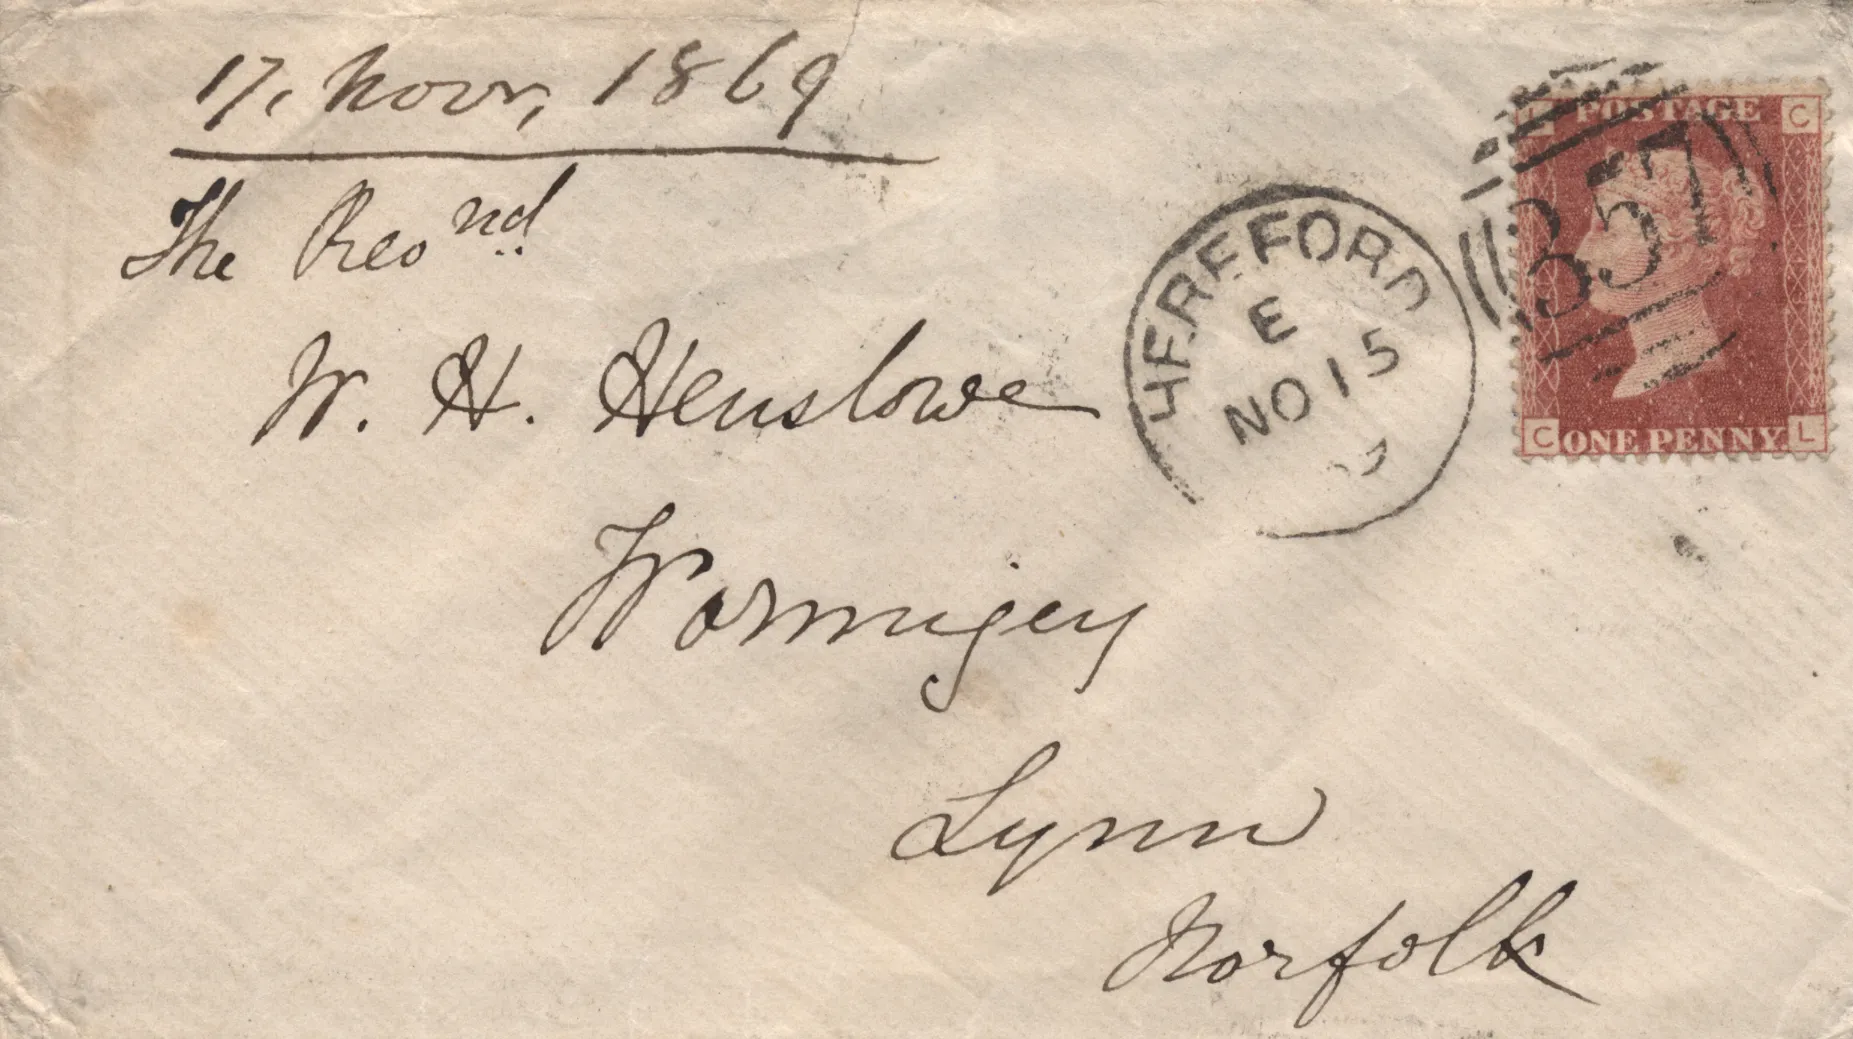 17, Novr, 1869
The Revnd
W. H. Henslowe
Wormigey
Lynn
Norfolk
HEREFORD
E
NO 15
357
L POSTAGE C
C ONE PENNY L